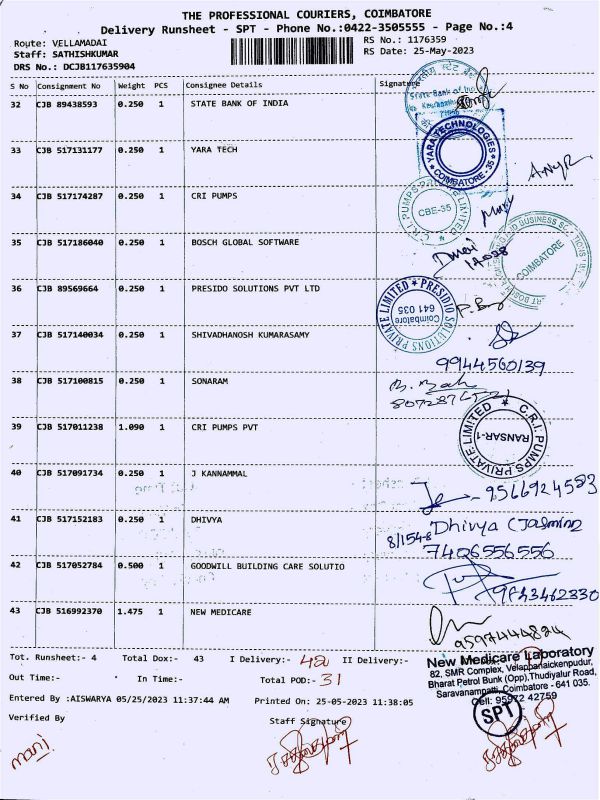 THE PROFESSIONAL COURIERS, COIMBATORE
Delivery Runsheet - SPT - Phone No.:0422-3505555 - Page No.:4
Route: VELLAMADAI
RS No.: 1176359
Staff: SATHISHKUMAR
RS Date: 25-May-2023
DRS No.: DCJB117635904
S No Consignment No Weight PCS Consignee Details Signature
32 CJB 89438593 0.250 1 STATE BANK OF INDIA
State Bank of
33 CJB 517131177 0.250 1 YARA TECH
YARA TECHNOLOGIES
COIMBATORE - 35
34 CJB 517174287 0.250 1 CRI PUMPS
C.R.I. PUMPS PRIVATE LIMITED
CBE-35
35 CJB 517186040 0.250 1 BOSCH GLOBAL SOFTWARE
BUSINESS SOLUTIONS
COIMBATORE
36 CJB 89569664 0.250 1 PRESIDO SOLUTIONS PVT LTD
PRESIDIO SOLUTIONS PRIVATE LIMITED
Coimbatore
641 035
37 CJB 517140034 0.250 1 SHIVADHANOSH KUMARASAMY
9944560139
38 CJB 517100815 0.250 1 SONARAM
807287
39 CJB 517011238 1.090 1 CRI PUMPS PVT
C.R.I. PUMPS PRIVATE LIMITED
RANSAR-1
40 CJB 517091734 0.250 1 J KANNAMMAL
9566924583
41 CJB 517152183 0.250 1 DHIVYA
Dhivya (Jasmine
8/154-8
7406556556
42 CJB 517052784 0.500 1 GOODWILL BUILDING CARE SOLUTIO
43 CJB 516992370 1.475 1 NEW MEDICARE
Tot. Runsheet:- 4 Total Dox:- 43 I Delivery:- 42 II Delivery:-
Out Time:- In Time:- Total POD:- 31
Entered By :AISWARYA 05/25/2023 11:37:44 AM Printed On: 25-05-2023 11:38:05
Verified By Staff Signature
New Medicare Laboratory
82, SMR Complex, Velappanaickenpudur,
Bharat Petrol Bunk (Opp),Thudiyalur Road,
Saravanampatti, Coimbatore - 641 035.
Cell: 95972 42759
SPT
mani